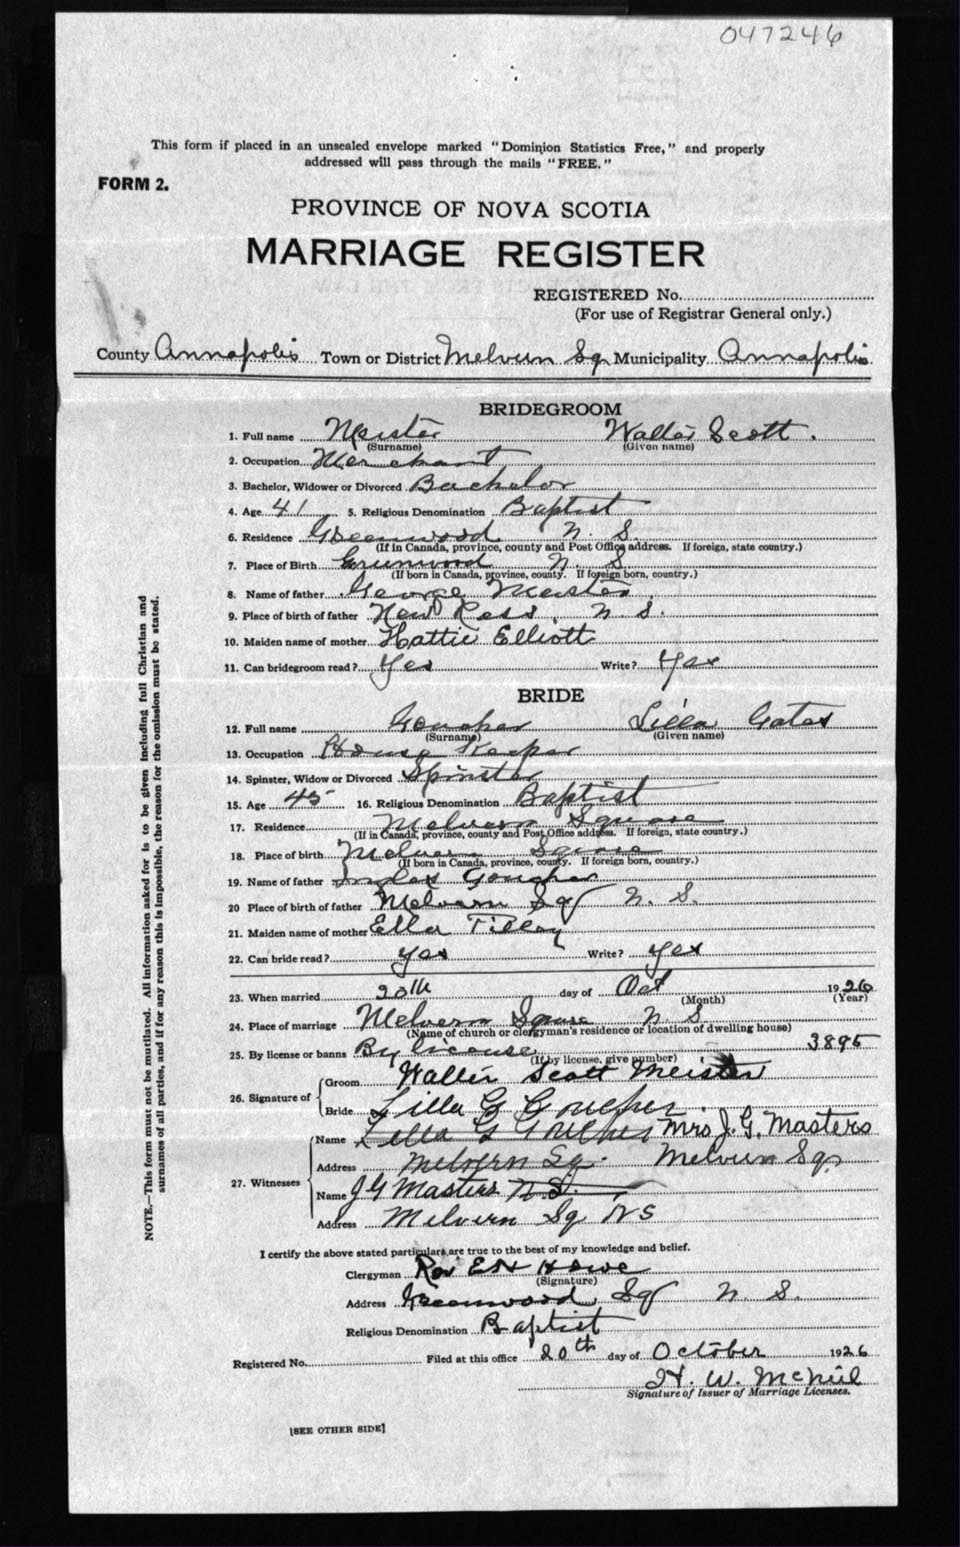 047246
This form if placed in an unsealed envelope marked "Dominion Statistics Free," and properly
addressed will pass through the mails "FREE."
FORM 2.
PROVINCE OF NOVA SCOTIA
MARRIAGE REGISTER
REGISTERED No.
(For use of Registrar General only.)
County Annapolis Town or District Melvern Sq Municipality Annapolis
BRIDEGROOM
1. Full name Meister Walter Scott.
(Surname) (Given name)
2. Occupation Merchant
3. Bachelor, Widower or Divorced Bachelor
4. Age 41 5. Religious Denomination Baptist
6. Residence Greenwood N. S.
(If in Canada, province, county and Post Office address. If foreign, state country.)
7. Place of Birth Greenwood N. S.
(If born in Canada, province, county. If foreign born, country.)
8. Name of father George Meister
9. Place of birth of father New Ross, N. S.
10. Maiden name of mother Hattie Elliott
11. Can bridegroom read? Yes Write? Yes
BRIDE
12. Full name Goucher Lilla Gates
(Surname) (Given name)
13. Occupation House Keeper
14. Spinster, Widow or Divorced Spinster
15. Age 45 16. Religious Denomination Baptist
17. Residence Melvern Square
(If in Canada, province, county and Post Office address. If foreign, state country.)
18. Place of birth Melvern Square
(If born in Canada, province, county. If foreign born, country.)
19. Name of father Goucher
20 Place of birth of father Melvern Sq N. S.
21. Maiden name of mother Ella Tilley
22. Can bride read? Yes Write? Yes
23. When married 20th day of Oct 1926
(Month) (Year)
24. Place of marriage Melvern Square N S
(Name of church or clergyman's residence or location of dwelling house)
25. By license or banns By license 3895
(If by license, give number)
26. Signature of Groom Walter Scott Meister
Bride Lilla G Goucher
27. Witnesses Name Lilla G Goucher Mrs J. G. Masters
Address Melvern Sq. Melvern Sq.
Name J G Masters N.S.
Address Melvern Sq N S
I certify the above stated particulars are true to the best of my knowledge and belief.
Clergyman Rev E H Howe
(Signature)
Address Greenwood Sq N. S.
Religious Denomination Baptist
Registered No. Filed at this office 20th day of October 1926
H. W. McNeil
Signature of Issuer of Marriage Licenses.
[SEE OTHER SIDE]
NOTE.—This form must not be mutilated. All information asked for is to be given including full Christian and
surnames of all parties, and if for any reason this is impossible, the reason for the omission must be stated.